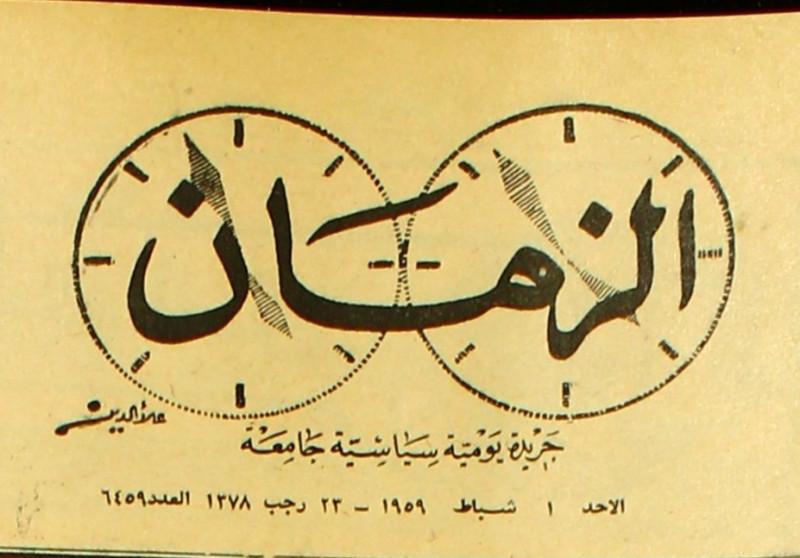 الزمان
علاءالدين
جريدة يومية سياسية جامعة
الاحد ١ شباط ١٩٥٩ - ٢٣ رجب ١٣٧٨ العدد ٦٤٥٩